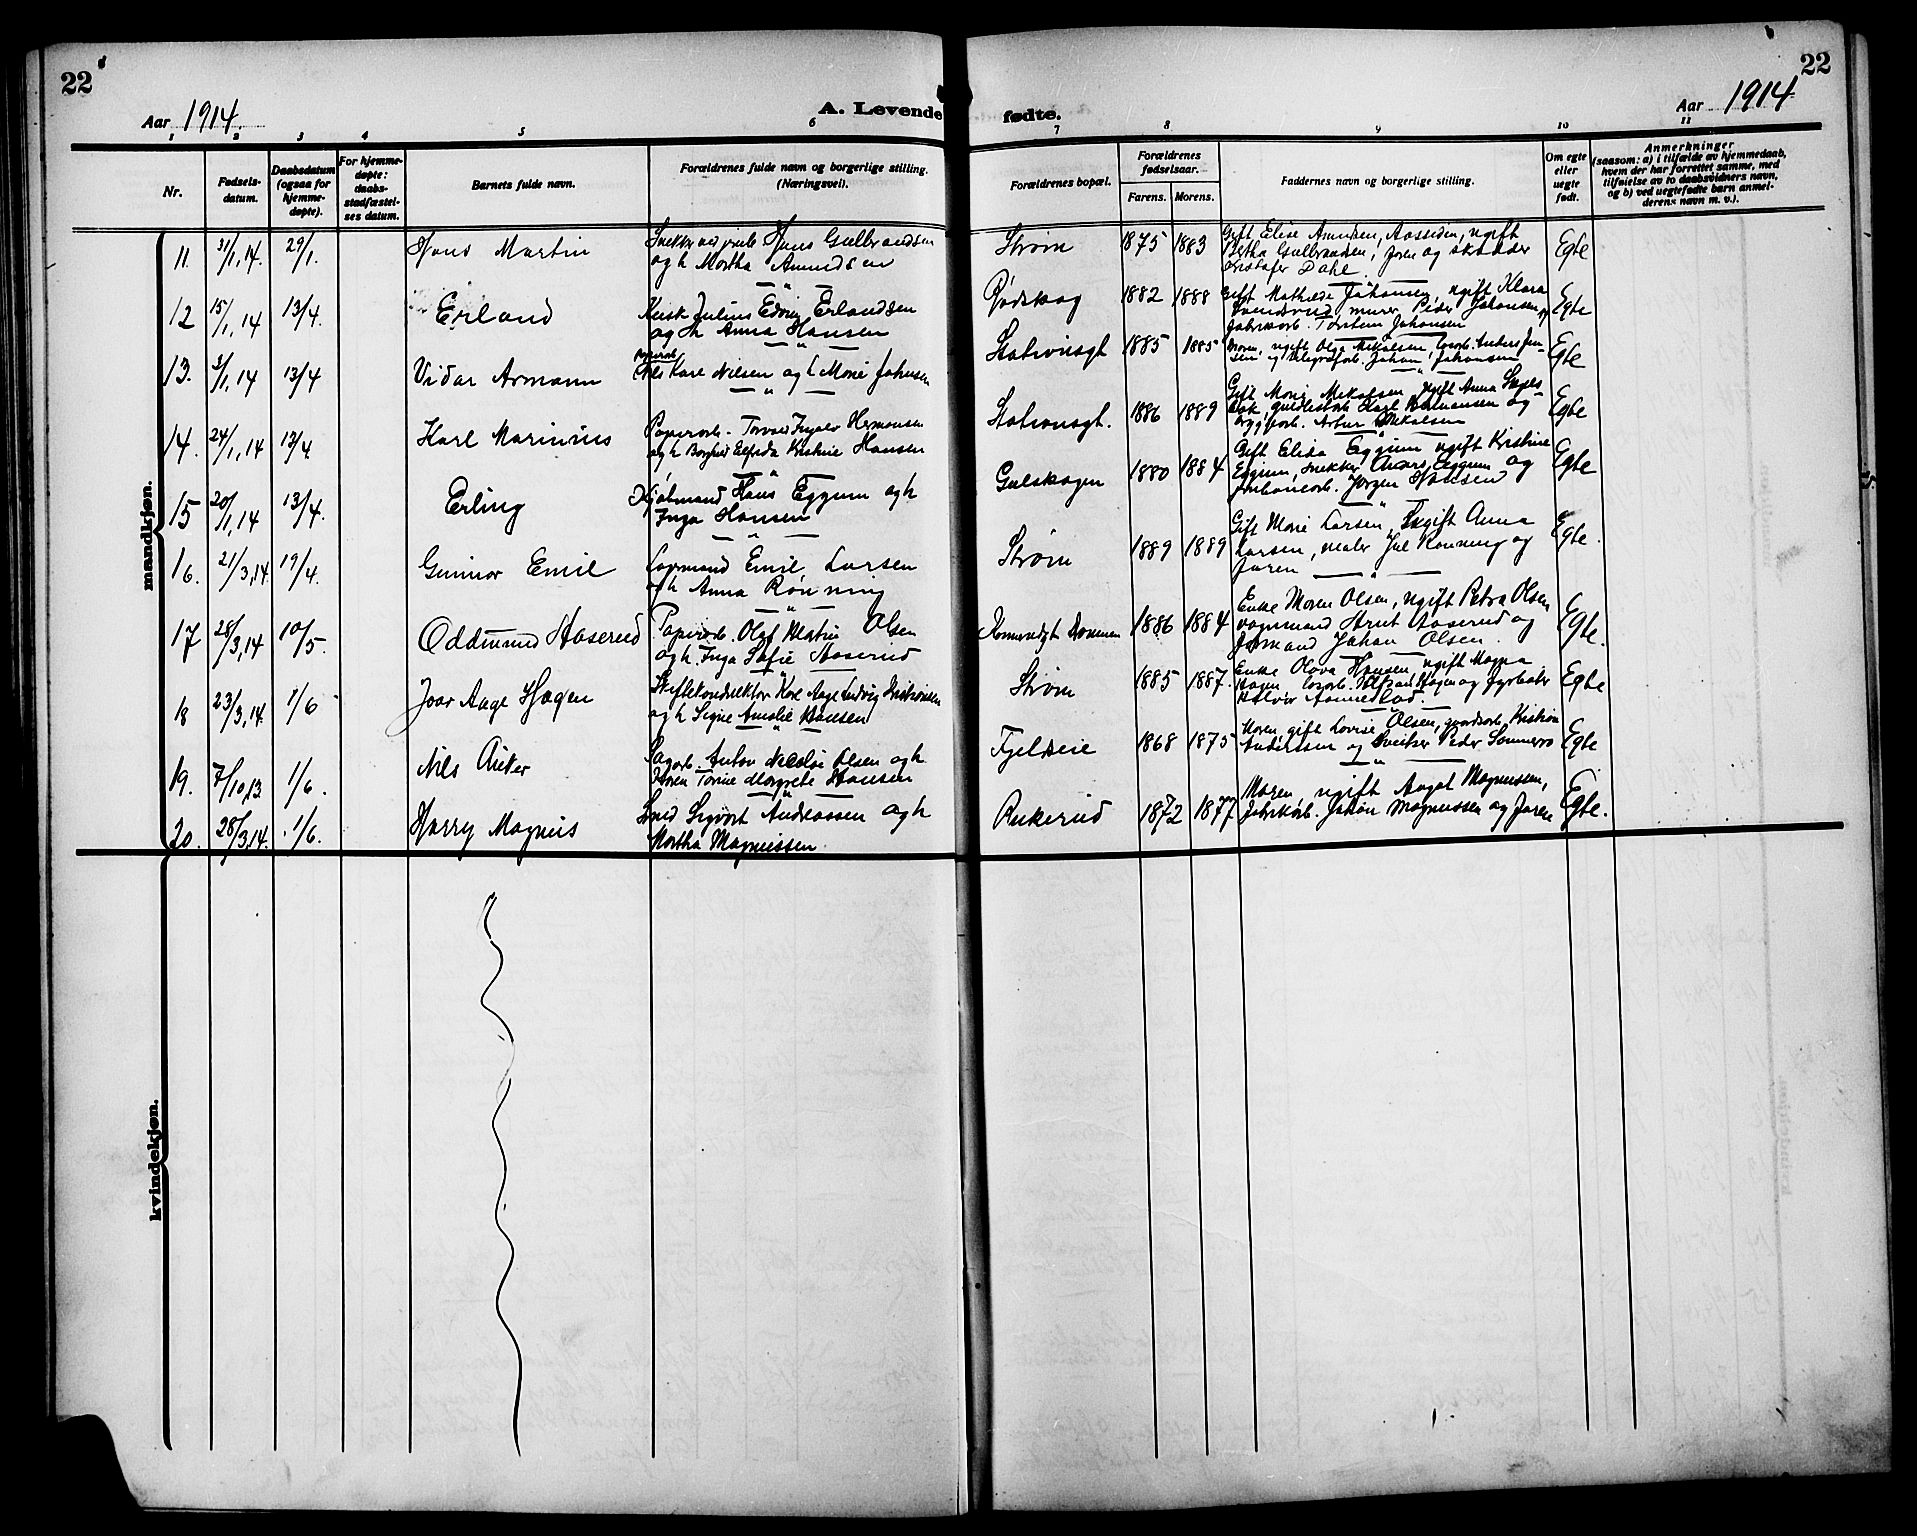 22
22
Aar 1914.
A. Levende fødte.
Aar 1914
1 2 3 4 5 6 7 8 9 10 11
Nr.
Fødsels-
datum.
Daabsdatum
(ogsaa for
hjemme-
døpte).
For hjemme-
døpte:
daabs-
stadfæstel-
ses datum.
Barnets fulde navn.
Forældrenes fulde navn og borgerlige stilling.
(Næringsvei).
Forældrenes bopæl.
Forældrenes
fødselsaar.
Farens. Morens.
Faddernes navn og borgerlige stilling.
Om egte
eller
uegte
født.
Anmerkninger
(saasom: a) i tilfælde av hjemmedaab,
hvem der har forrettet samme, med
tilføielse av to daabsvidners navn,
og b) ved uegtefødte barn anmel-
derens navn m. v.).
mandkjøn.
11. 31/1,14. 29/1. Hans Martin
Hans Gulbrandsen
og h Martha Amundsen
Strøm 1875 1883
Gift Elise Amundsen, Aassiden, ugift
Bertha Gulbrandsen, faren og
Kristofer Dahl
Egte
12 15/1,14 13/4. Erland
Kusk Julius Edvin Erlandsen
og h Anna Hansen
Rødskog 1882 1888
Gift Mathilde Johansen, ugift Klara
murer Peder Johansen og
fabrikarb. Torstein Johansen
Egte
13. 3/1,14 13/4 Vidar Armann
Papirarb.
Nils Kare Nilsen og h Marie Johnsen
Stationsgt 1885 1885
Moren, ugift Olga Mikalsen, Anders Jen-
sen og Johan Johansen
Egte
14. 24/1,14 13/4 Karl Marinius
Papirarb. Torvald Ingolv Hermansen
og h Borghild Elfrida Kristine Hansen
Stationsgt. 1886 1889
Gift Marie Mikalsen, ugift Anna
Karl Hermansen og
bryggiarb. Artur Mikalsen
Egte
15 20/1,14 13/4. Erling
Kjøbmand Hans Eggum og h
Inga Hansen
Gulskogen 1880 1884
Gift Elida Eggum ugift Kristine
Eggum, snekker Eggum og
Jørgen Hansen
Egte
16. 21/3,14. 19/4. Gunnar Emil
Emil Larsen
og h Anna Rønning
Strøm 1889 1889
Gift Marie Larsen, ugift Anna
Larsen, maler Rønning og
faren
Egte.
17 28/3,14 10/5. Oddmund Haserud
Papirarb. Olaf Martin Olsen
og h. Inga Sofie Aaserud
1886 1884
Enke Maren Olsen, ugift Petra Olsen
vognmand Aaserud og
Johan Olsen
Egte.
18 23/3,14. 1/6 Joar Aage Hagen
Skiftekonduktør Kare Aage Ludvig Kristiansen
og h Signe Amalie Hansen
Strøm 1885 1887.
Enke Olava Hansen, ugift Magna
Hagen, Hagen og fyrbøter
Halvor
Egte
19. 7/10,13. 1/6. Nils Anker
Sagarb. Anton Nicolai Olsen og h
Karen Torine Margrete Hansen
Fjeldheie 1868 1875
Moren, gift Lovise Olsen, gaardsarb. Kristian
Andersen og Peder
Egte
20. 28/3,14. 1/6. Harry Magnus
Smed Sigvart Andreassen og h
Martha Magnussen
Rukerud 1872 1877
Moren, ugift Aagot Magnussen,
fabrikarb. Johan Magnussen og faren
Egte.
kvindekjøn.